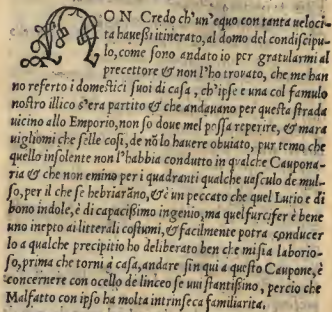 NON Credo ch'un'equo con tanta veloci-
ta haueßi itinerato, al domo del condiscipu-
lo, come sono andato io per gratularmi al
precettore & non l'ho trovato, che me han
no referto i domestici suoi di casa, ch'ipse e una col famulo
nostro illico s'era partito & che andauano per questa strada
uicino allo Emporio, non so doue mel possa reperire, & mara
uigliomi che selle cosi, de nō lo hauere obuiato, pur temo che
quello insolente non l'habbia condutto in qualche Caupona-
ria & che non emino per i quadranti qualche uasculo de mul-
so, per il che se hebriarāno, & è un peccato che quel Lucio e di
bono indole, è di capacißimo ingenio, ma quel furcifer è bene
uno inepto ai litterali costumi, & facilmente potra conducer
lo a qualche precipitio ho deliberato ben che mi sia laborio-
so, prima che torni a casa, andare sin qui a questo Caupone, è
concernere con ocello de linceo se iui stantißino, percio che
Malfatto con ipso ha molta intrinseca familiarita.